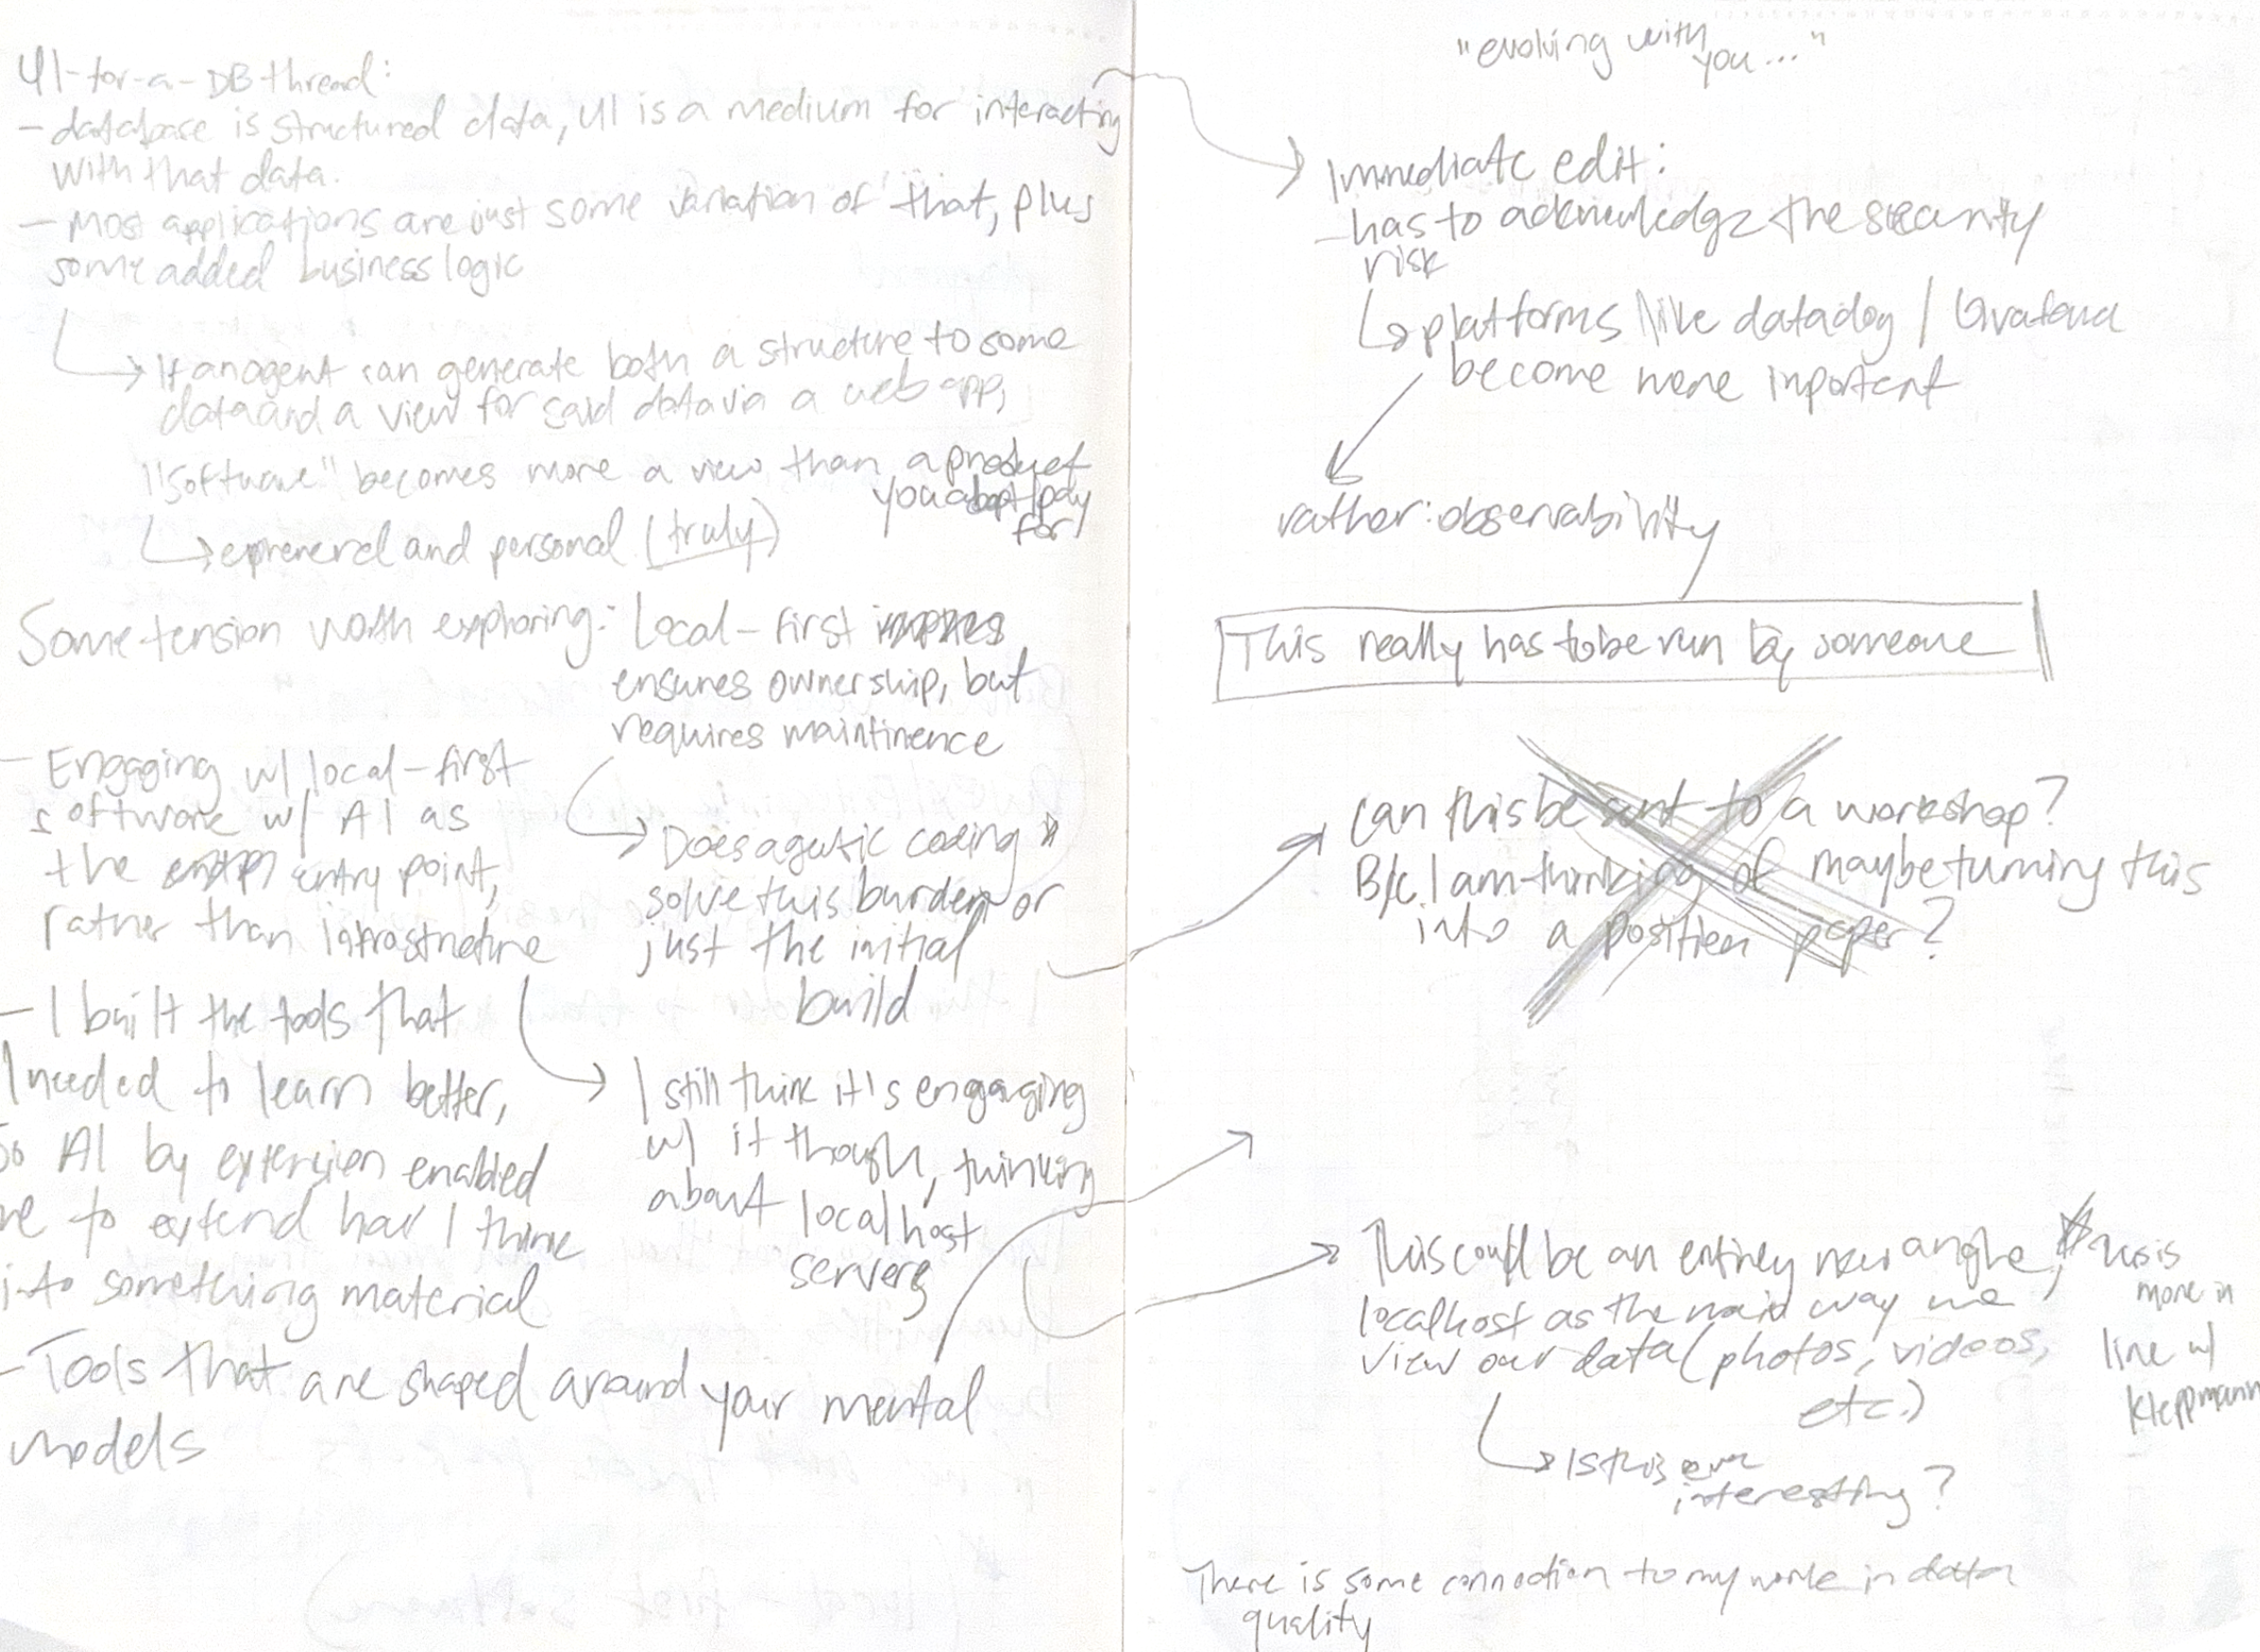 UI-for-a-DB thread:
- database is structured data, UI is a medium for interacting
with that data.
- Most applications are just some variation of that, plus
some added business logic
If an agent can generate both a structure to some
data and a view for said data via a web app,
"software" becomes more a view than a product
you adopt/pay
for
ephemeral and personal (truly)
Some tension worth exploring: Local-first
ensures ownership, but
requires maintinence
Does agentic coding
solve this burden or
just the initial
build
- Engaging w/ local-first
software w/ AI as
the entry point,
rather than infrastructure
I still think it's engaging
w/ it though, thinking
about localhost
servers
- I built the tools that
I needed to learn better,
so AI by extension enabled
me to extend how I think
into something material
- Tools that are shaped around your mental
models
"evolving with
you..."
Immediate edit:
- has to acknowledge the security
risk
platforms like datadog / Grafana
become more important
rather: observability
This really has to be run by someone
Can this be sent to a workshop?
B/c I am thinking of maybe turning this
into a position paper?
This could be an entirey new angle,
localhost as the main way we
view our data (photos, videos,
etc.)
this is
more in
line w/
Kleppmann
Is this even
interesting?
There is some connection to my work in data
quality